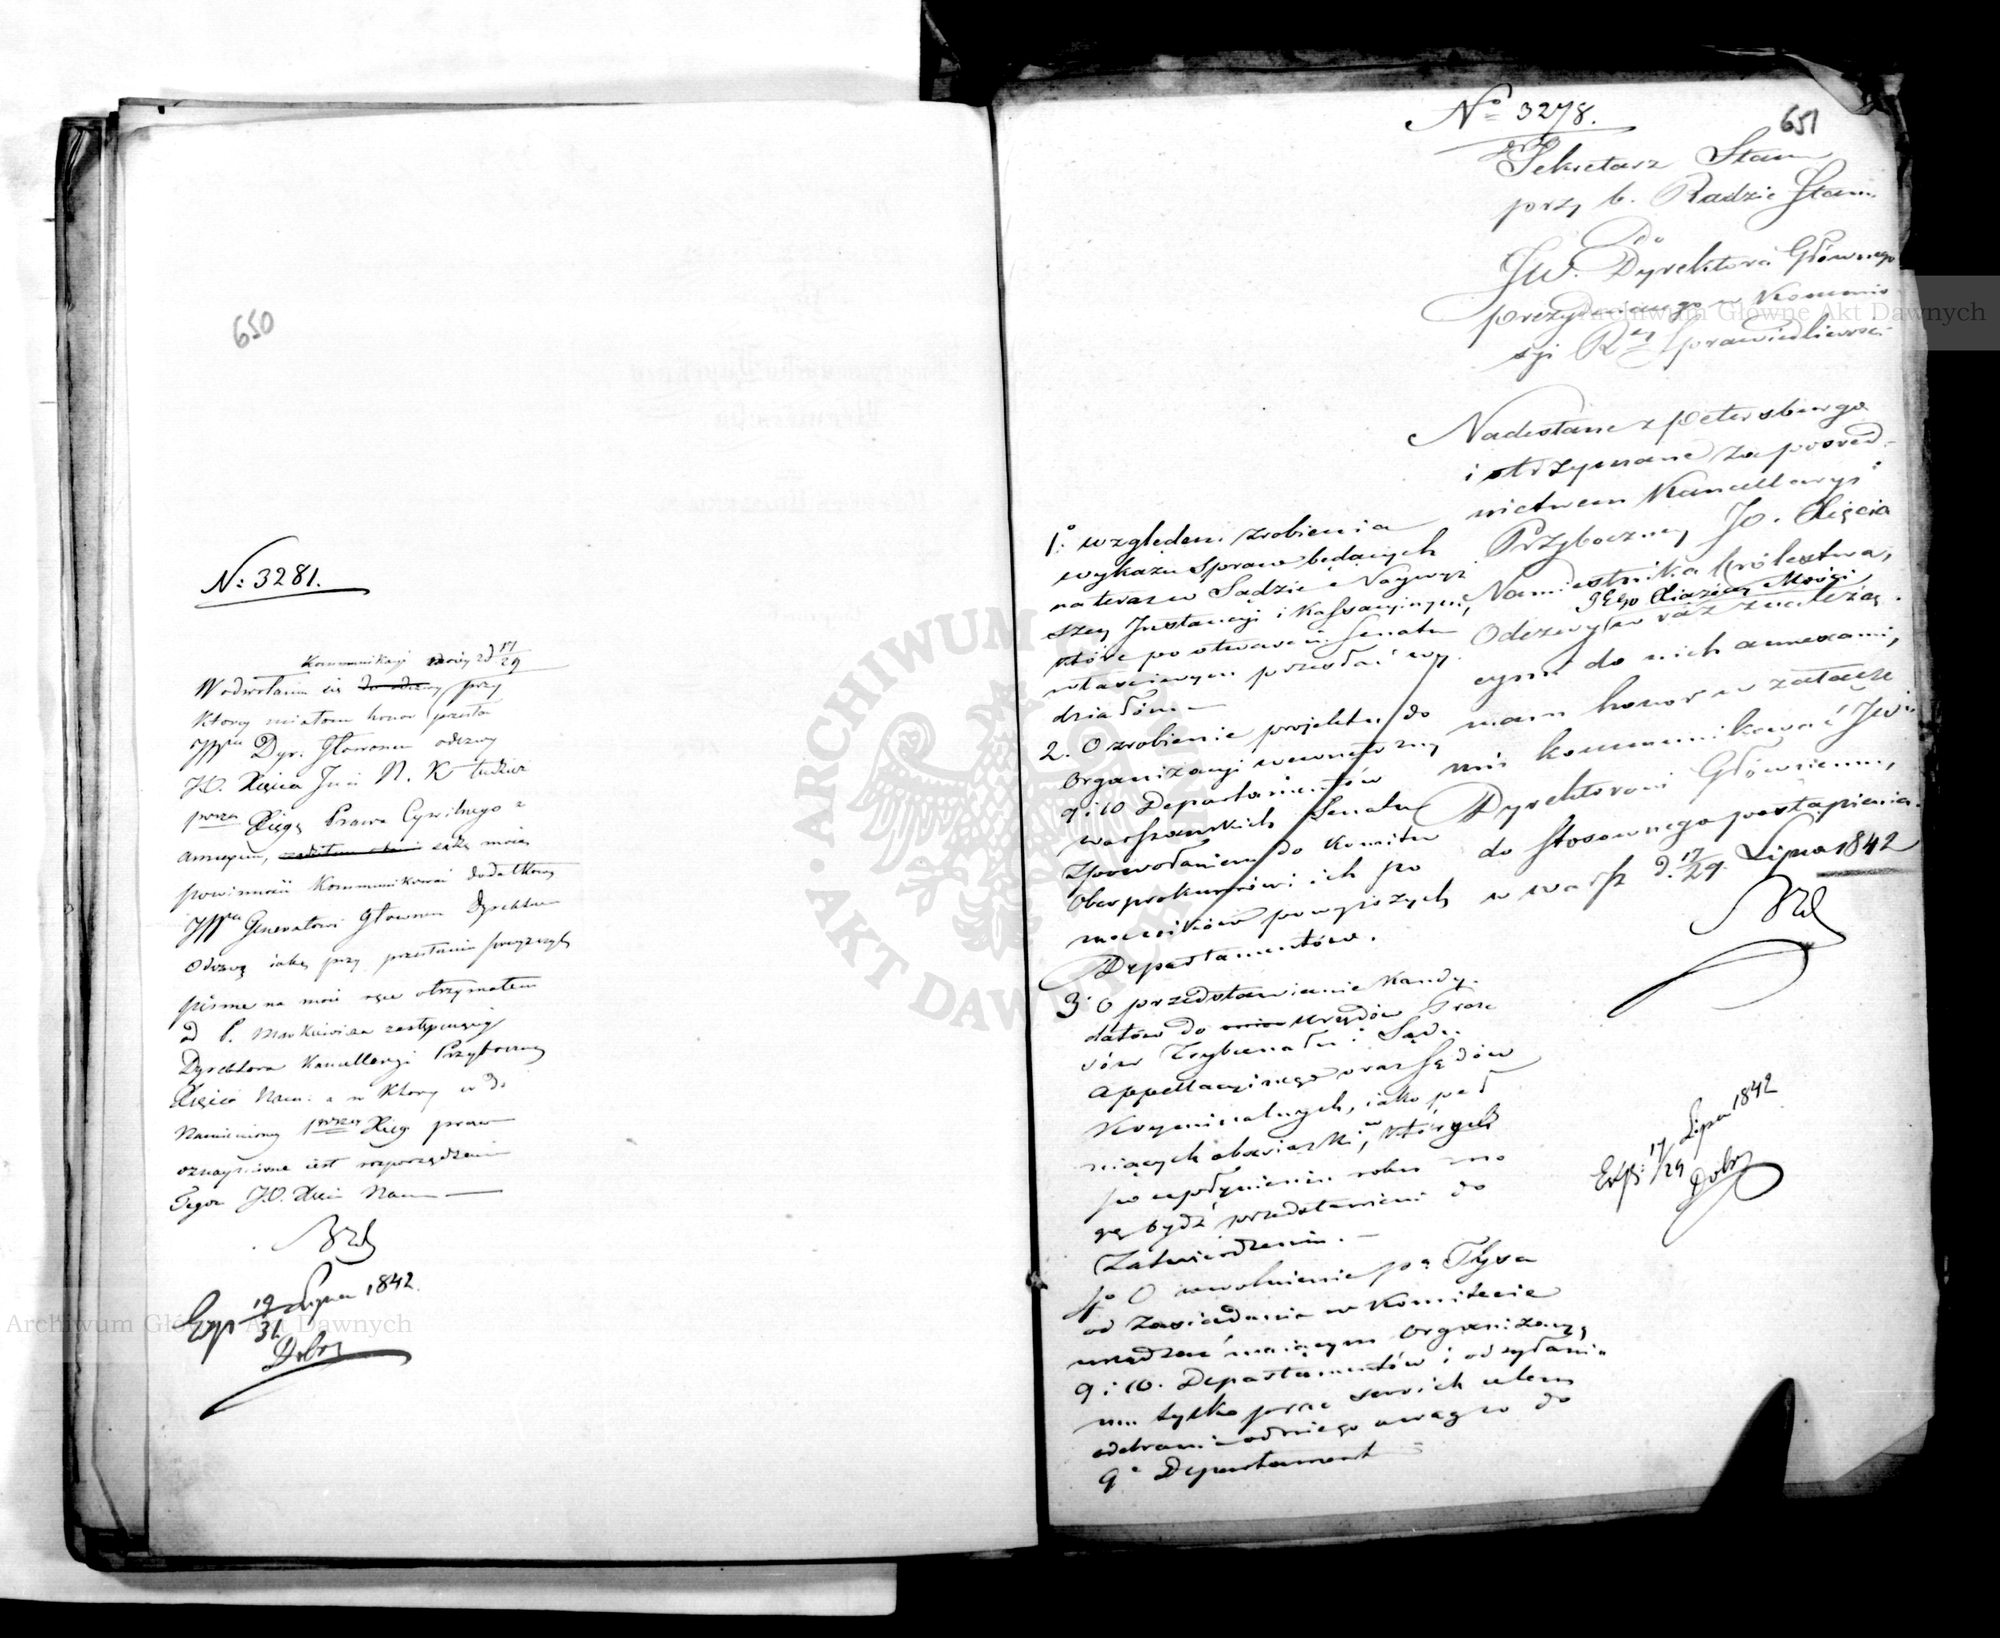 650
N: 3281.
Kommunikacji moiéy z d 17/29
W odwołaniu się do odezwy przy
którey miałem honor przesłać
JWu Dyr. Głównemu odezwy
JO. Xięcia Jmci N. K. tudzież
Xięgę Prawa Cywilnego z
annexem, sobie moię
powinność kommunikować dodatkowo
JWu Generałowi Głównemu Dyrektorowi
Odezwę iaką przy przesłaniu powyższych
pism na moie ręce otrzymałem
od P. Markiewicza zastępującego
Dyrektora Kancellaryi Przyboczney
Xięcia Nam: a w którey w do
Namienioney Xięgi praw
oznaymione iest rozporządzenie
Tegoż J.O. Xcia Nam
Exp 19/31 Lipca 1842.
Dobr
651
No 3278.
Sekretarz Stanu
przy b. Radzie Stanu
Do
JW. Dyrektora Głównego
prezydującego w Kommis-
syi Rey Sprawiedliwości
Nadesłane z Petersburga
i otrzymane za pośred-
nictwem Kancellaryi
Przyboczney Jo. Xięcia
Namiestnika Królestwa,
JEgo Xiążęcey Mości,
Odezwy wraz z należą-
cymi do nich annexami,
mam honor w załącze
niu kommunikować JWu
Dyrektorowi Głównemu,
do stosownego postąpienia.
w Warsz d. 17/29. Lipca 1842
1o: względem zrobienia
wykazu Spraw będących
na teraz w Sądzie Naywyż
szey Instancyi i Kassacyinym,
które po otwarciu Senatu
właściwym przesłać wy-
działom
2. O zrobienie projektu do
Organizacyi wewnętrzney
9 i 10 Departamentów
warszawskich Senatu
z powołaniem do Komitetu
Oberprokurorów i ich po
mocników powyższych
Departamentów.
3o O przedstawienie Kandy-
datów do urzędów Preze
sów Trybunału i Sądu
Appellacyinego oraz Sędziów
Kryminalnych, iako peł
niących obowiązki, których
po upłynieniu roku mo
gą bydź przedstawieni do
Zatwierdzenia. —
4o O uwolnienie pa Tysa
od zasiadania w Komitecie
urządzać maiącym Organizacyą
9 i 10. Departamentów i odsyłani
mu tylko prac swoich celem
odebrania od niego uwag do
9o Departament
Exp: 17/29 Lipca 1842
Dobr
Archiwum Główne Akt Dawnych
Archiwum Główne Akt Dawnych
ARCHIWUM GŁÓWNE AKT DAWNYCH